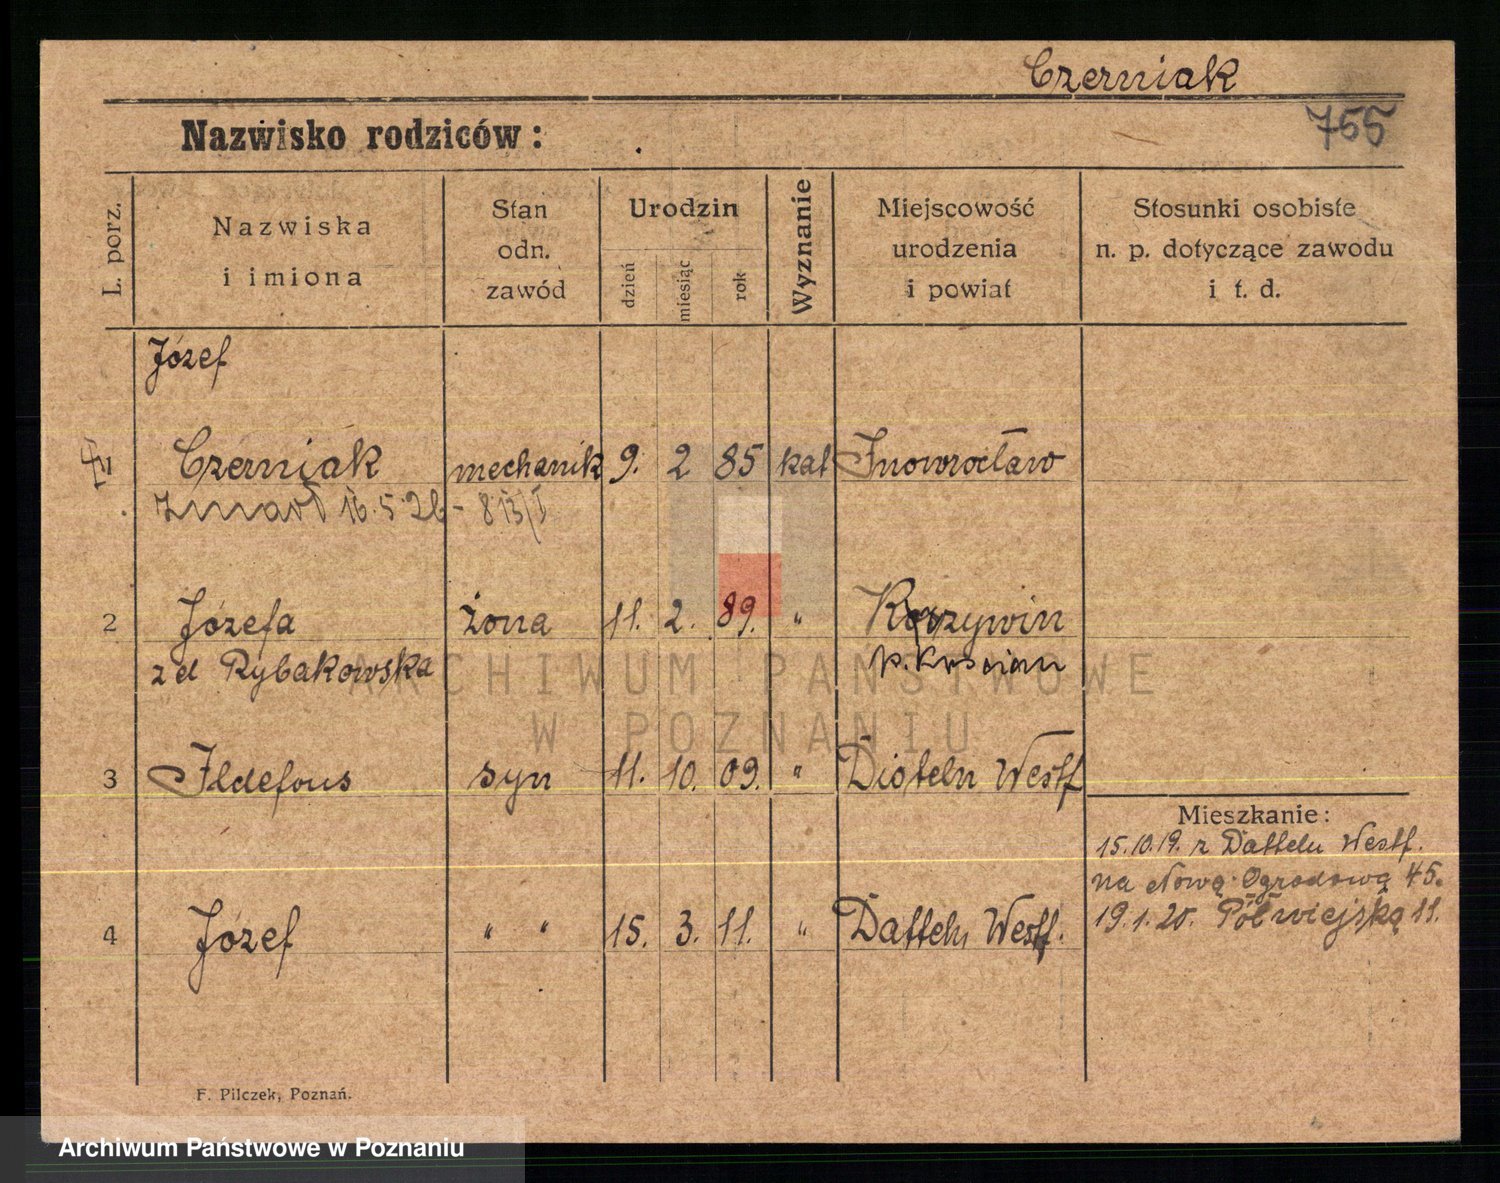 Czerniak
755
Nazwisko rodziców:
L. porz.
Nazwiska
i imiona
Stan
odn.
zawód
Urodzin
dzień
miesiąc
rok
Wyznanie
Miejscowość
urodzenia
i powiat
Stosunki osobiste
n. p. dotyczące zawodu
i t. d.
Józef
1 Czerniak mechanik 9. 2 85 kat Inowrocław
zmarł 16.5.26 - 813/I
2 Józefa żona 11. 2. 89. " 
z d Rybakowska p. Kościan
3 Ildefons syn 11. 10. 09. " Datteln Westf
Mieszkanie:
15.10.19. z Datteln Westf.
na Nową Ogrodową 45.
19.1.20. Półwiejską 11.
4 Józef " " 15. 3. 11. " Datteln Westf.
F. Pilczek, Poznań.
ARCHIWUM PAŃSTWOWE
W POZNANIU
Archiwum Państwowe w Poznaniu